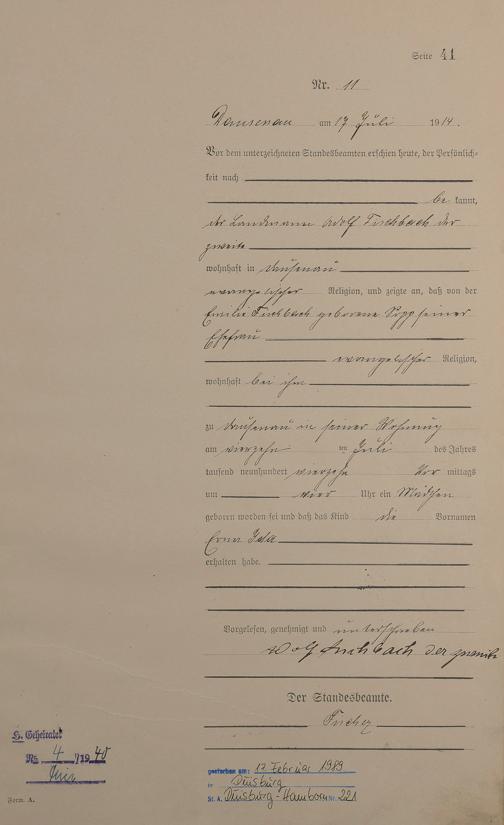 Seite 41
Nr. 11
Dausenau am 17 Juli 1914.
Vor dem unterzeichneten Standesbeamten erschien heute, der Persönlich-
keit nach
be kannt,
der Landmann Adolf Fischbach der
zweite
wohnhaft in Dausenau
evangelischer Religion, und zeigte an, daß von der
Emilie Fischbach geborene seiner
Ehefrau
evangelischer Religion,
wohnhaft bei ihm
zu Dausenau in seiner Wohnung
am vierzehn ten Juli des Jahres
tausend neunhundert vierzehn Vor mittags
um vier Uhr ein Mädchen
geboren worden sei und daß das Kind die Vornamen
Erna Ida
erhalten habe.
Vorgelesen, genehmigt und unterschrieben
Adolf Fischbach der zweite
Der Standesbeamte.
H. Geheiratet
Nr. 4 /1940
gestorben am: 12 Februar 1989
in Duisburg
St. A. Duisburg-Hamborn Nr. 221
Form. A.